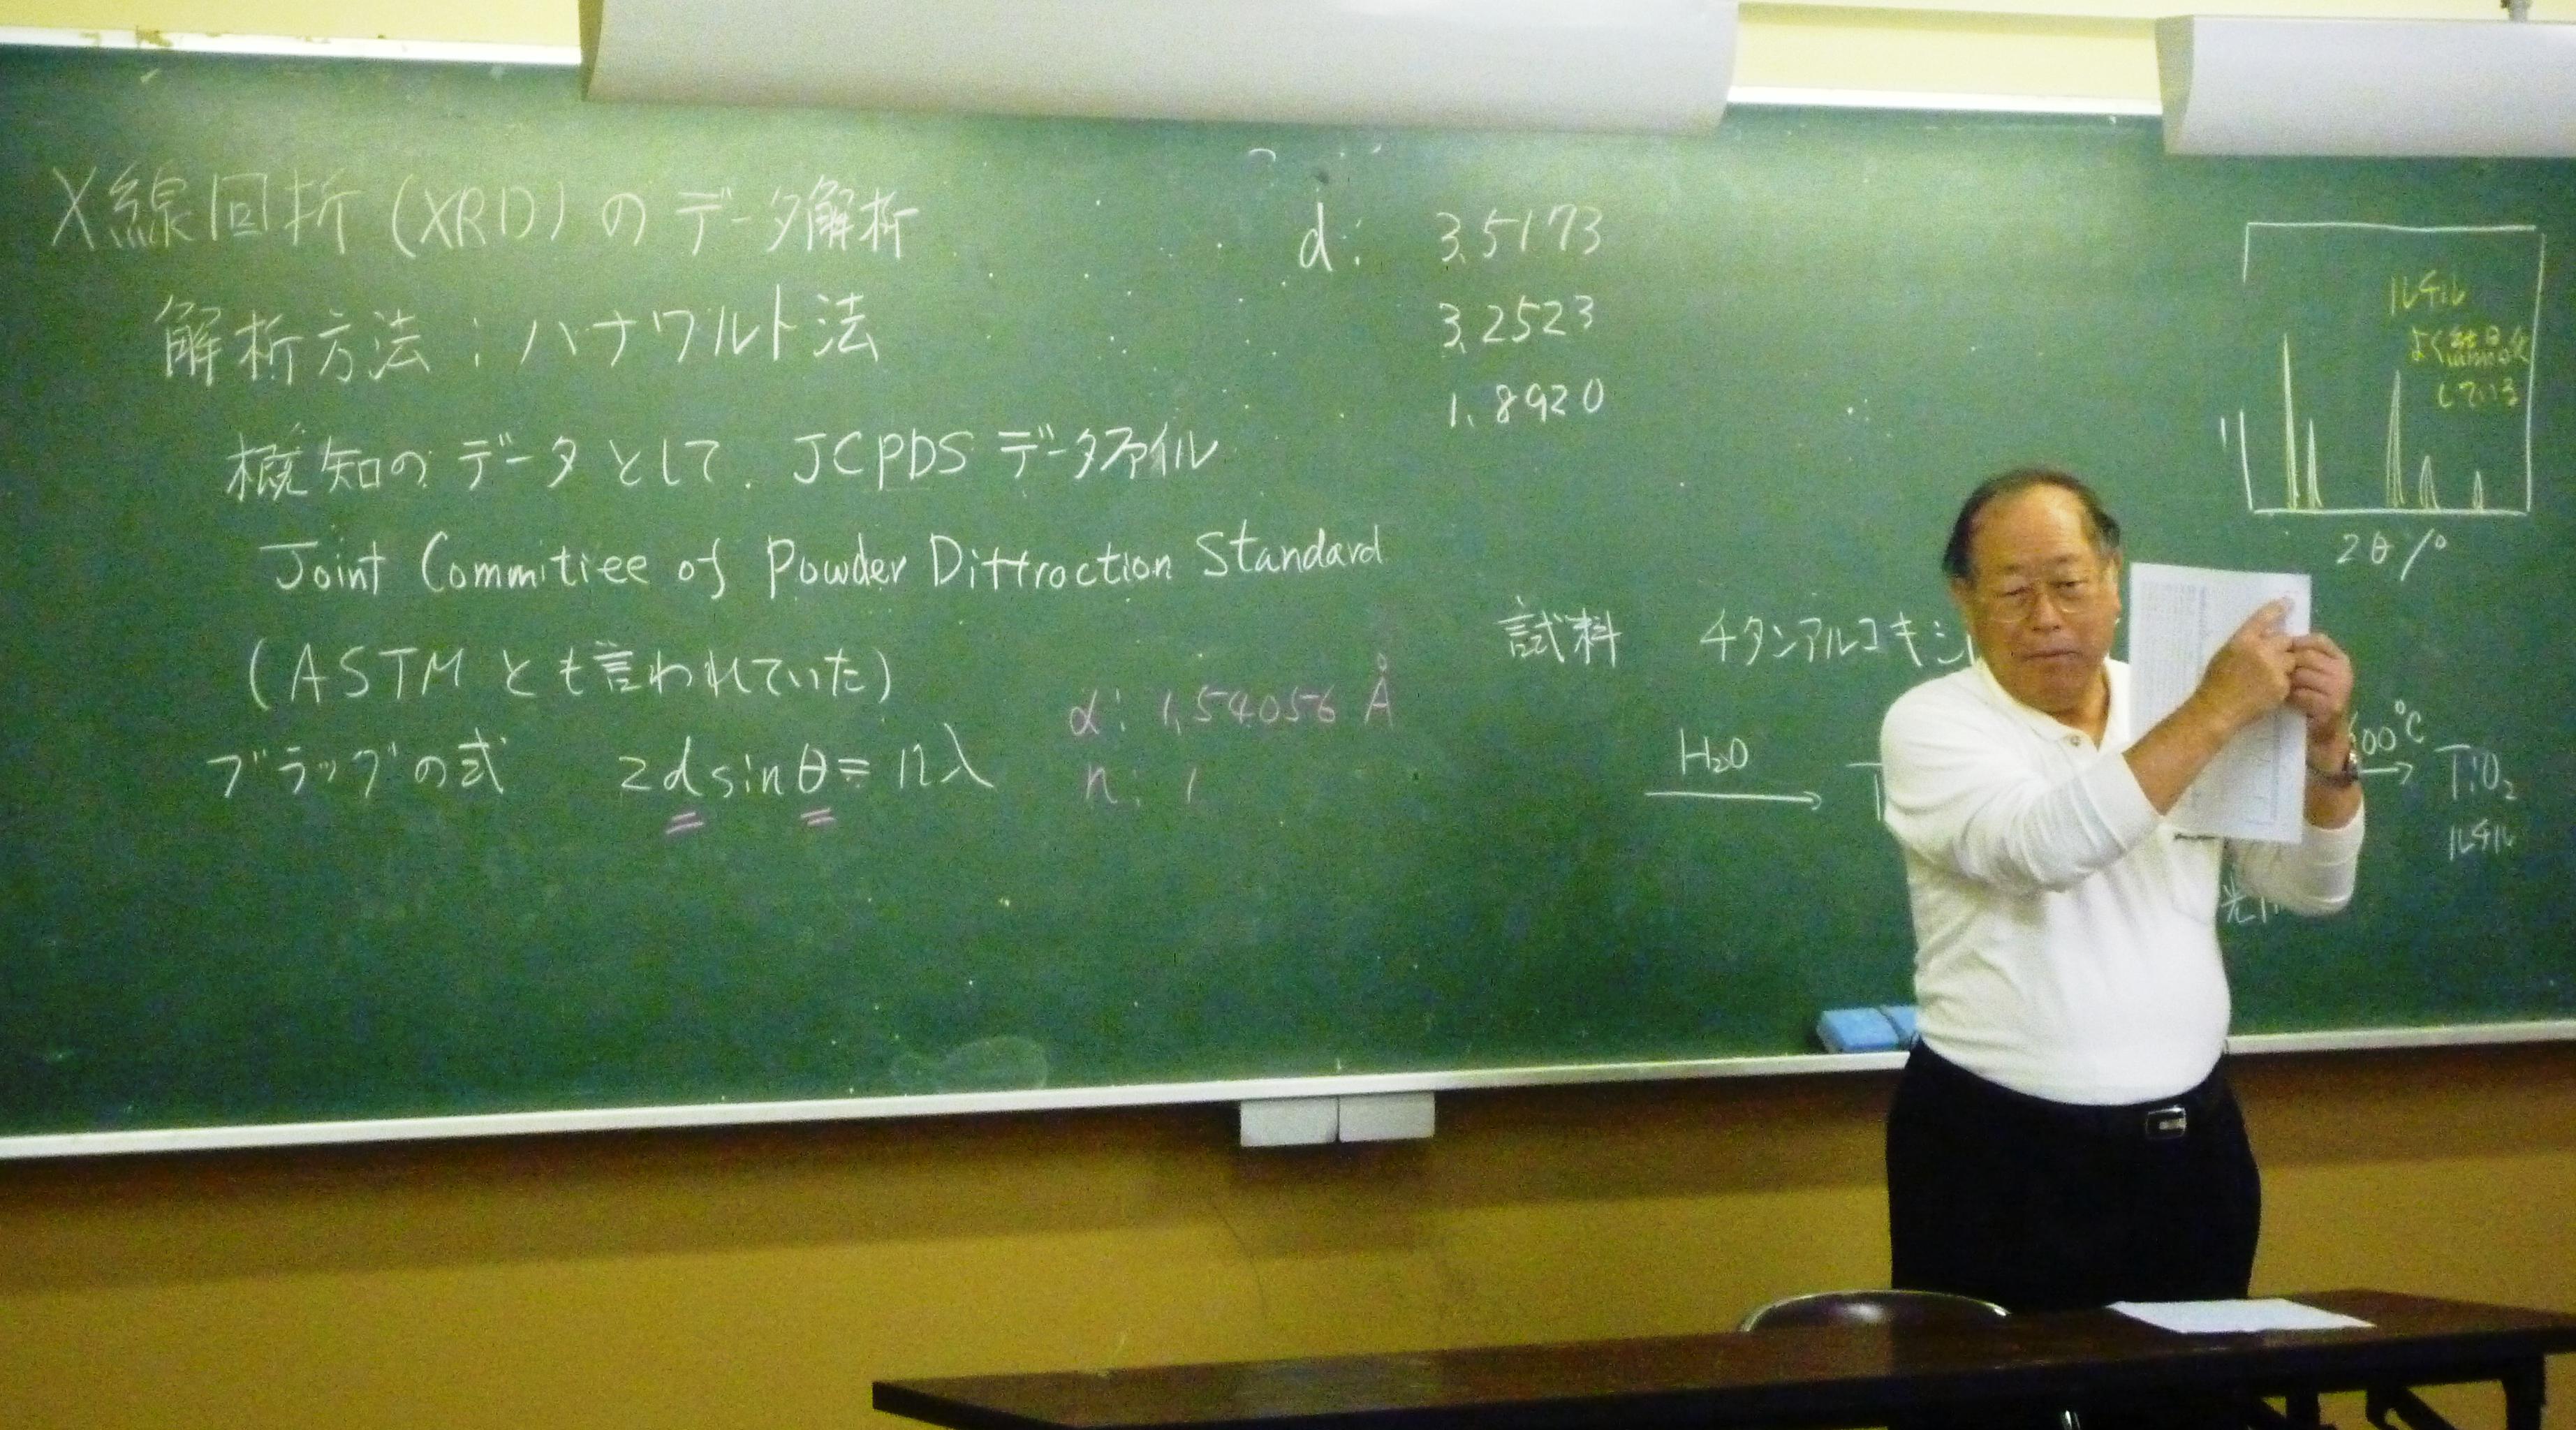 X線回折 (XRD) の データ解析
解析方法 : ハナワルト法
概知の データ として. JCPDS データファイル
Joint Commitiee of Powder Diffraction Standard
(ASTM とも言われていた)
ブラッグの式 2d sinθ = nλ
α: 1.54056 Å
n: 1
d: 3.5173
3.2523
1.8920
ルチル
よく結晶化
している
I
2θ/°
試料 チタンアルコキシ
H₂O
00°C
TiO₂
ルチル
光